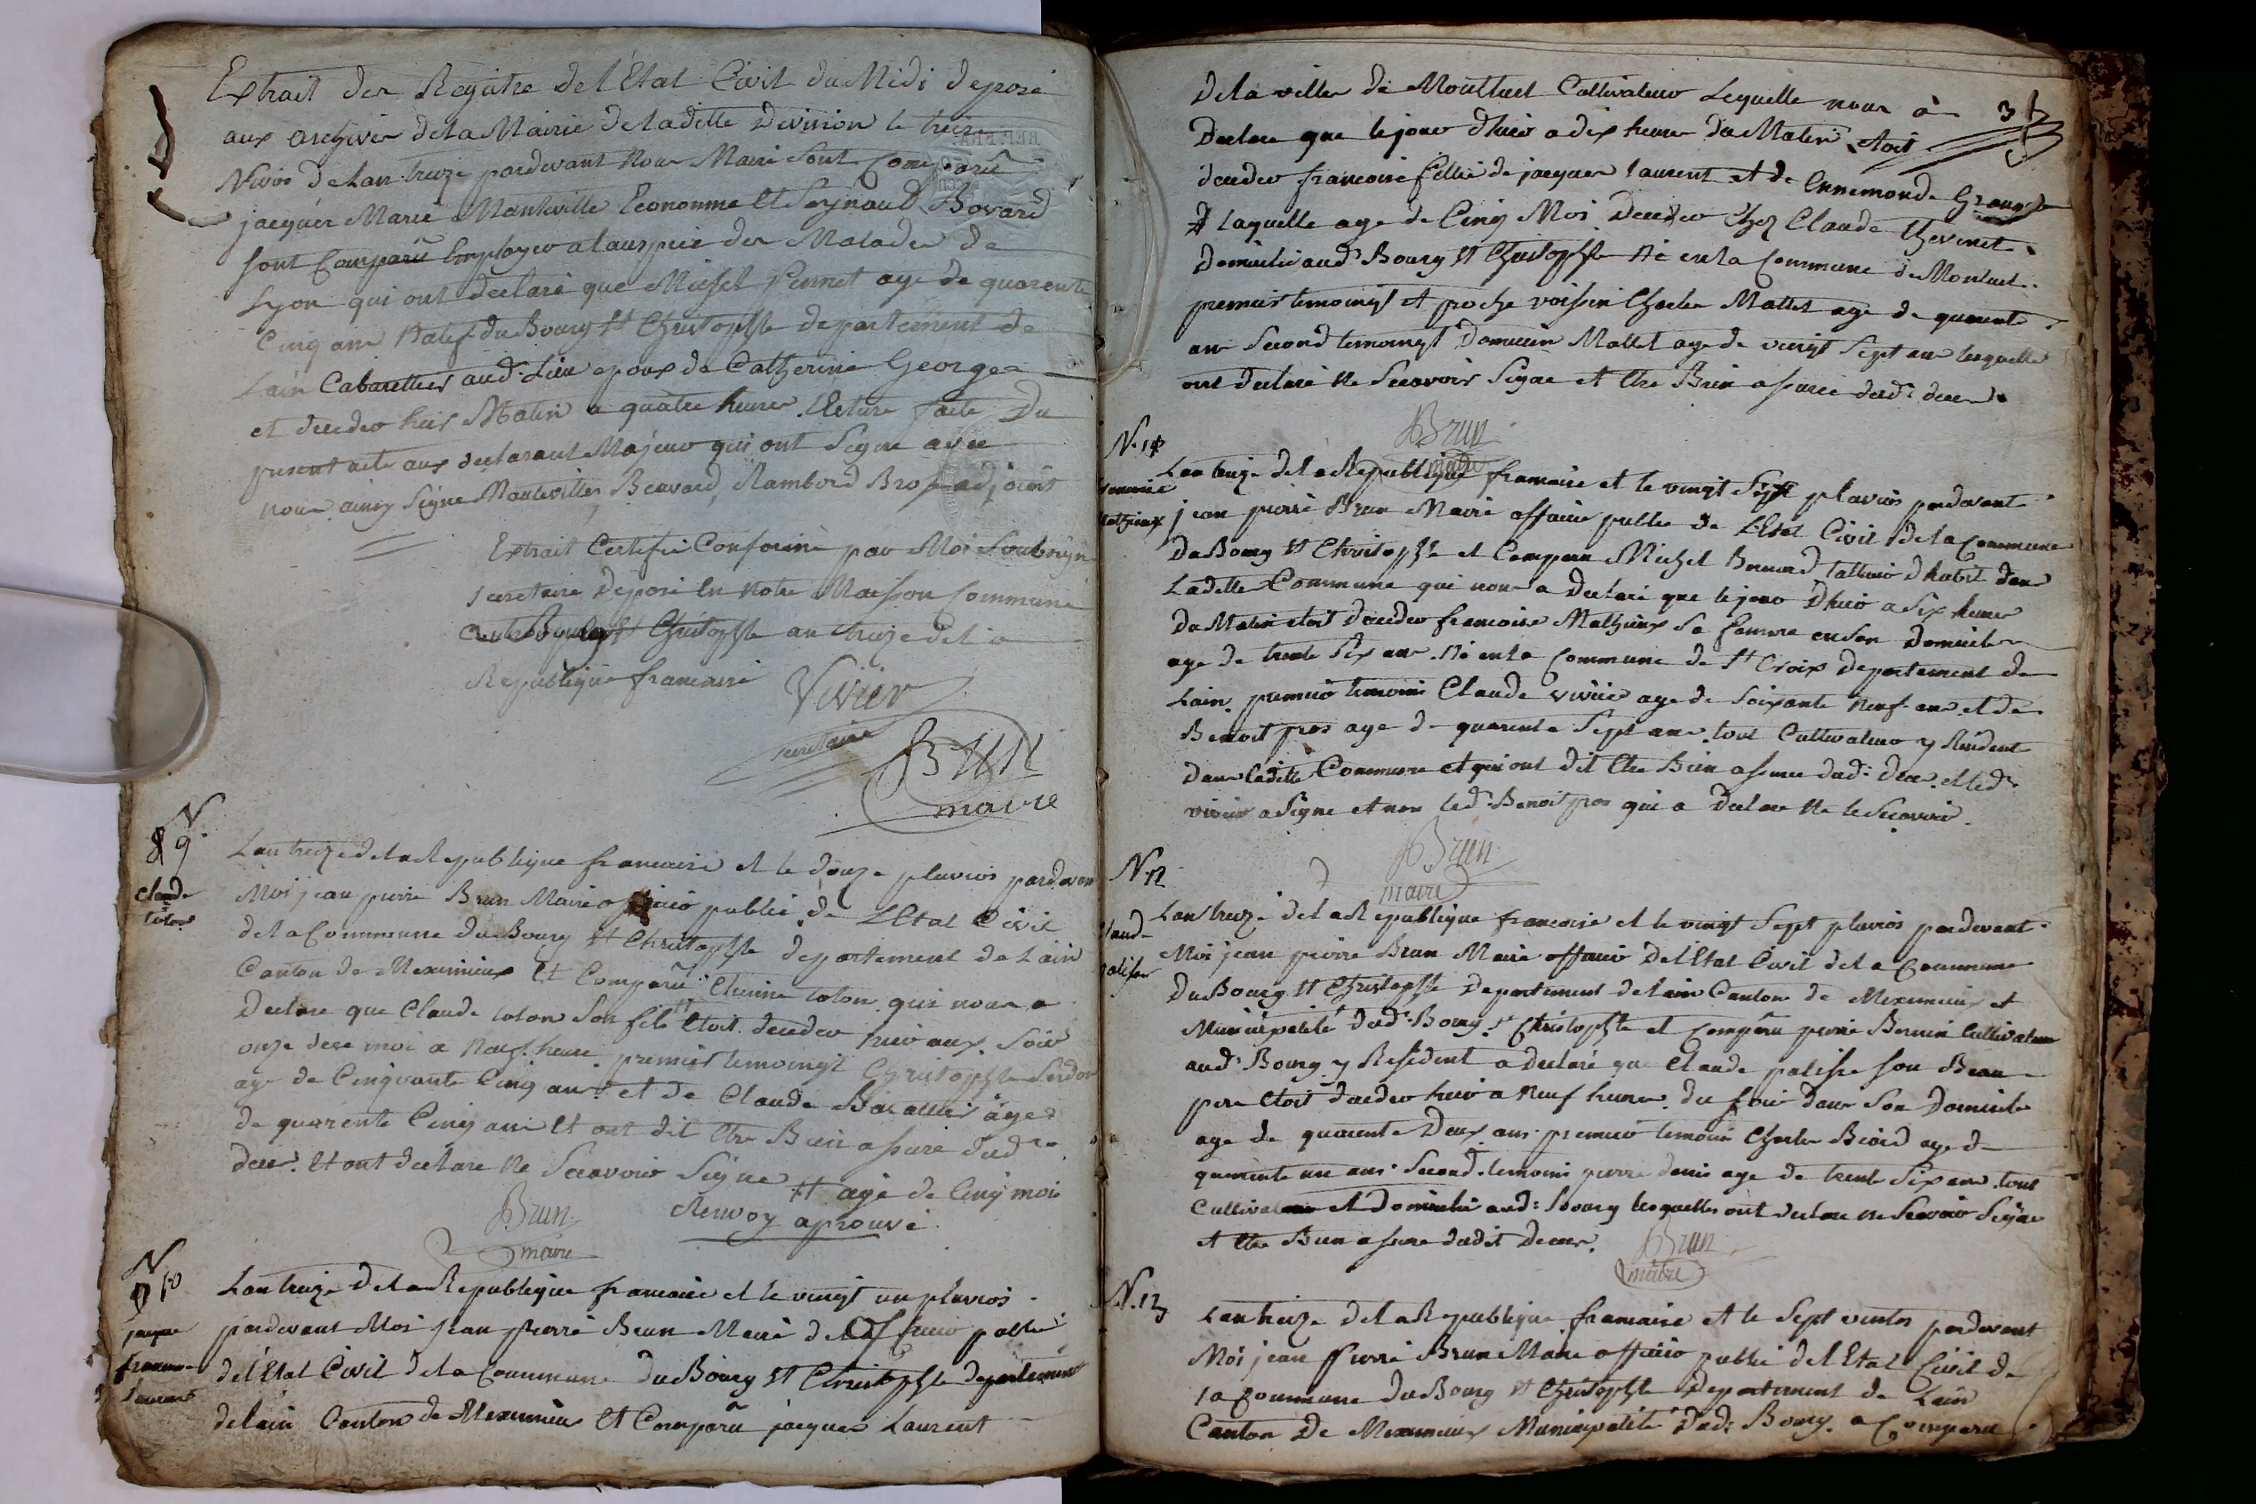 Extrait des Registre de l'Etat Civil du Midi deposé
aux archives de la Mairie de la ditte Division le treize
Nivos de lan treize pardevant Nous Maire sont Comparû
jacques Marie Manteville Econnome et Reynaud Bovard
sont Comparû Employer a lauspice des Malades de
Lyon qui ont declaré que Michel Perret age de quarente
Cinq ans Natif du Bourg St Christophle departement de
Lain Cabarettier aud. Lieu epoux de Catherine George
et decedeo hier Matin a quatre heures. Lecture faite Du
present acte aux declarant Majeur qui ont Signe avec
nous ainsy Signe Rambord adjoint
Extrait Certifié Conforme par Moi Soubsigné
secretaire deposé en notre Maison Commune
St Christophle an treize de la
Republique francaise
Vivier
secretaire
BRUN
maire
N
9
Claude
Colon
Lan treize de la Republique francaise et le douze pluvios pardevan
Moi jean pierre Brun Maire officio public de L'Etat Civil
de la Commune du Bourg St Christophle departement de Lain
Canton de Meximieux et Comparû Etienne Colon qui nous a
Declare que Claude Colon Son fils # etoit decedeo hier aux Soir
onze dece moi a Neuf heure premier temoingt Christophle
age de Cinquante Cinq ans et de Claude Baraillier âge
de quarente Cinq ans Et ont dit Etre Bien assuré dud
deces. Et ont declare Ne Scavoir Signe
# agé de Cinq mois
Renvoy aprouvé
Brun
maire
N
10
jacque
francoise
Laurent
Lan treize de la Republique francaise et le vingt un pluvios
pardevant Moi jean pierre Brun Maire de officio public
de l'Etat Civil de la Commune du Bourg St Christophle departement
de lain Canton de Meximieux Et Comparû jacques Laurent
3
de la ville de Montluel Cultivateur Lequelle nous à
Declare que le jour d'hier a dix heure du Matin etoit
decedeo francoise fille de jacques Laurent et de Ennemonde Grange
# laquelle age de Cinq Moi Decedeo chez Claude Thevenet
Domicilié aud. Bourg St Christophle Né en la Commune de Montluel
premier temoingt et proche voissin Charle Mallet age de quarente
ans Second temoingt Domicien Mallet age de vingt Sept ans lesquelle
ont declaré Ne Scavoir Signe et Etre Bien assuré dud. deces
Brun
maire
N. 11
francoise
Mathieux
Lan treize de la Republique francaise et le vingt Sept pluvios pardevant
jean pierre Brun Maire officio public de L'Etat Civil de la Commune
du Bourg St Christophle et Comparu Michel Bernard tallieur d'habit dans
Ladette Commune qui nous a Declaré que le jour d'hier a Six heure
du Matin etoit decedeo francoise Mathieux Sa femme en Son Domicile
age de trente Six ans. Né en la Commune de St Croix Departement de
Lain. premier temoins Claude vivier age de Soixante Neuf ans et de
Benoit pros age de quarente Sept ans. tout Cultivateur y Resident
dans Laditte Commune et qui ont dit Etre Bien assuré dud. deces. et led.
vivier a Signe et non led. Benoit pros qui a declare Ne le Scavoir.
Brun
maire
N 12
Claude
palisse
Lan treize de la Republique francoise et le vingt Sept pluvios pardevant
Moi jean pierre Brun Maire officio De l'Etat Civil de la Commune
du Bourg St Christophle Departement de lain Canton de Meximieux et
Municipalité dud. Bourg St Christophle et Comparu pierre Cultivateur
aud. Bourg y Resident a declaré que Claude palisse son Beau
pere etoit decedeo hier a Neuf heure du soir dans Son Domicile
age de quarente Deux ans premier temoin Charle age de
quarente un ans. Second temoins pierre denis age de trente Six ans. tout
Cultivateur et Domicilié aud. Bourg lesquelles ont declare ne Scavoir Signe
et Etre Bien assure dudit Deces.
Brun
maire
N. 13
Lan treize de la Republique francaise et le Sept ventos pardevant
Moi jean Pierre Brun Maire officio public de l'Etat Civil de
la Commune du Bourg St Christophle Departement de Lain
Canton De Meximieux Municipalité Dud. Bourg. a Comparu